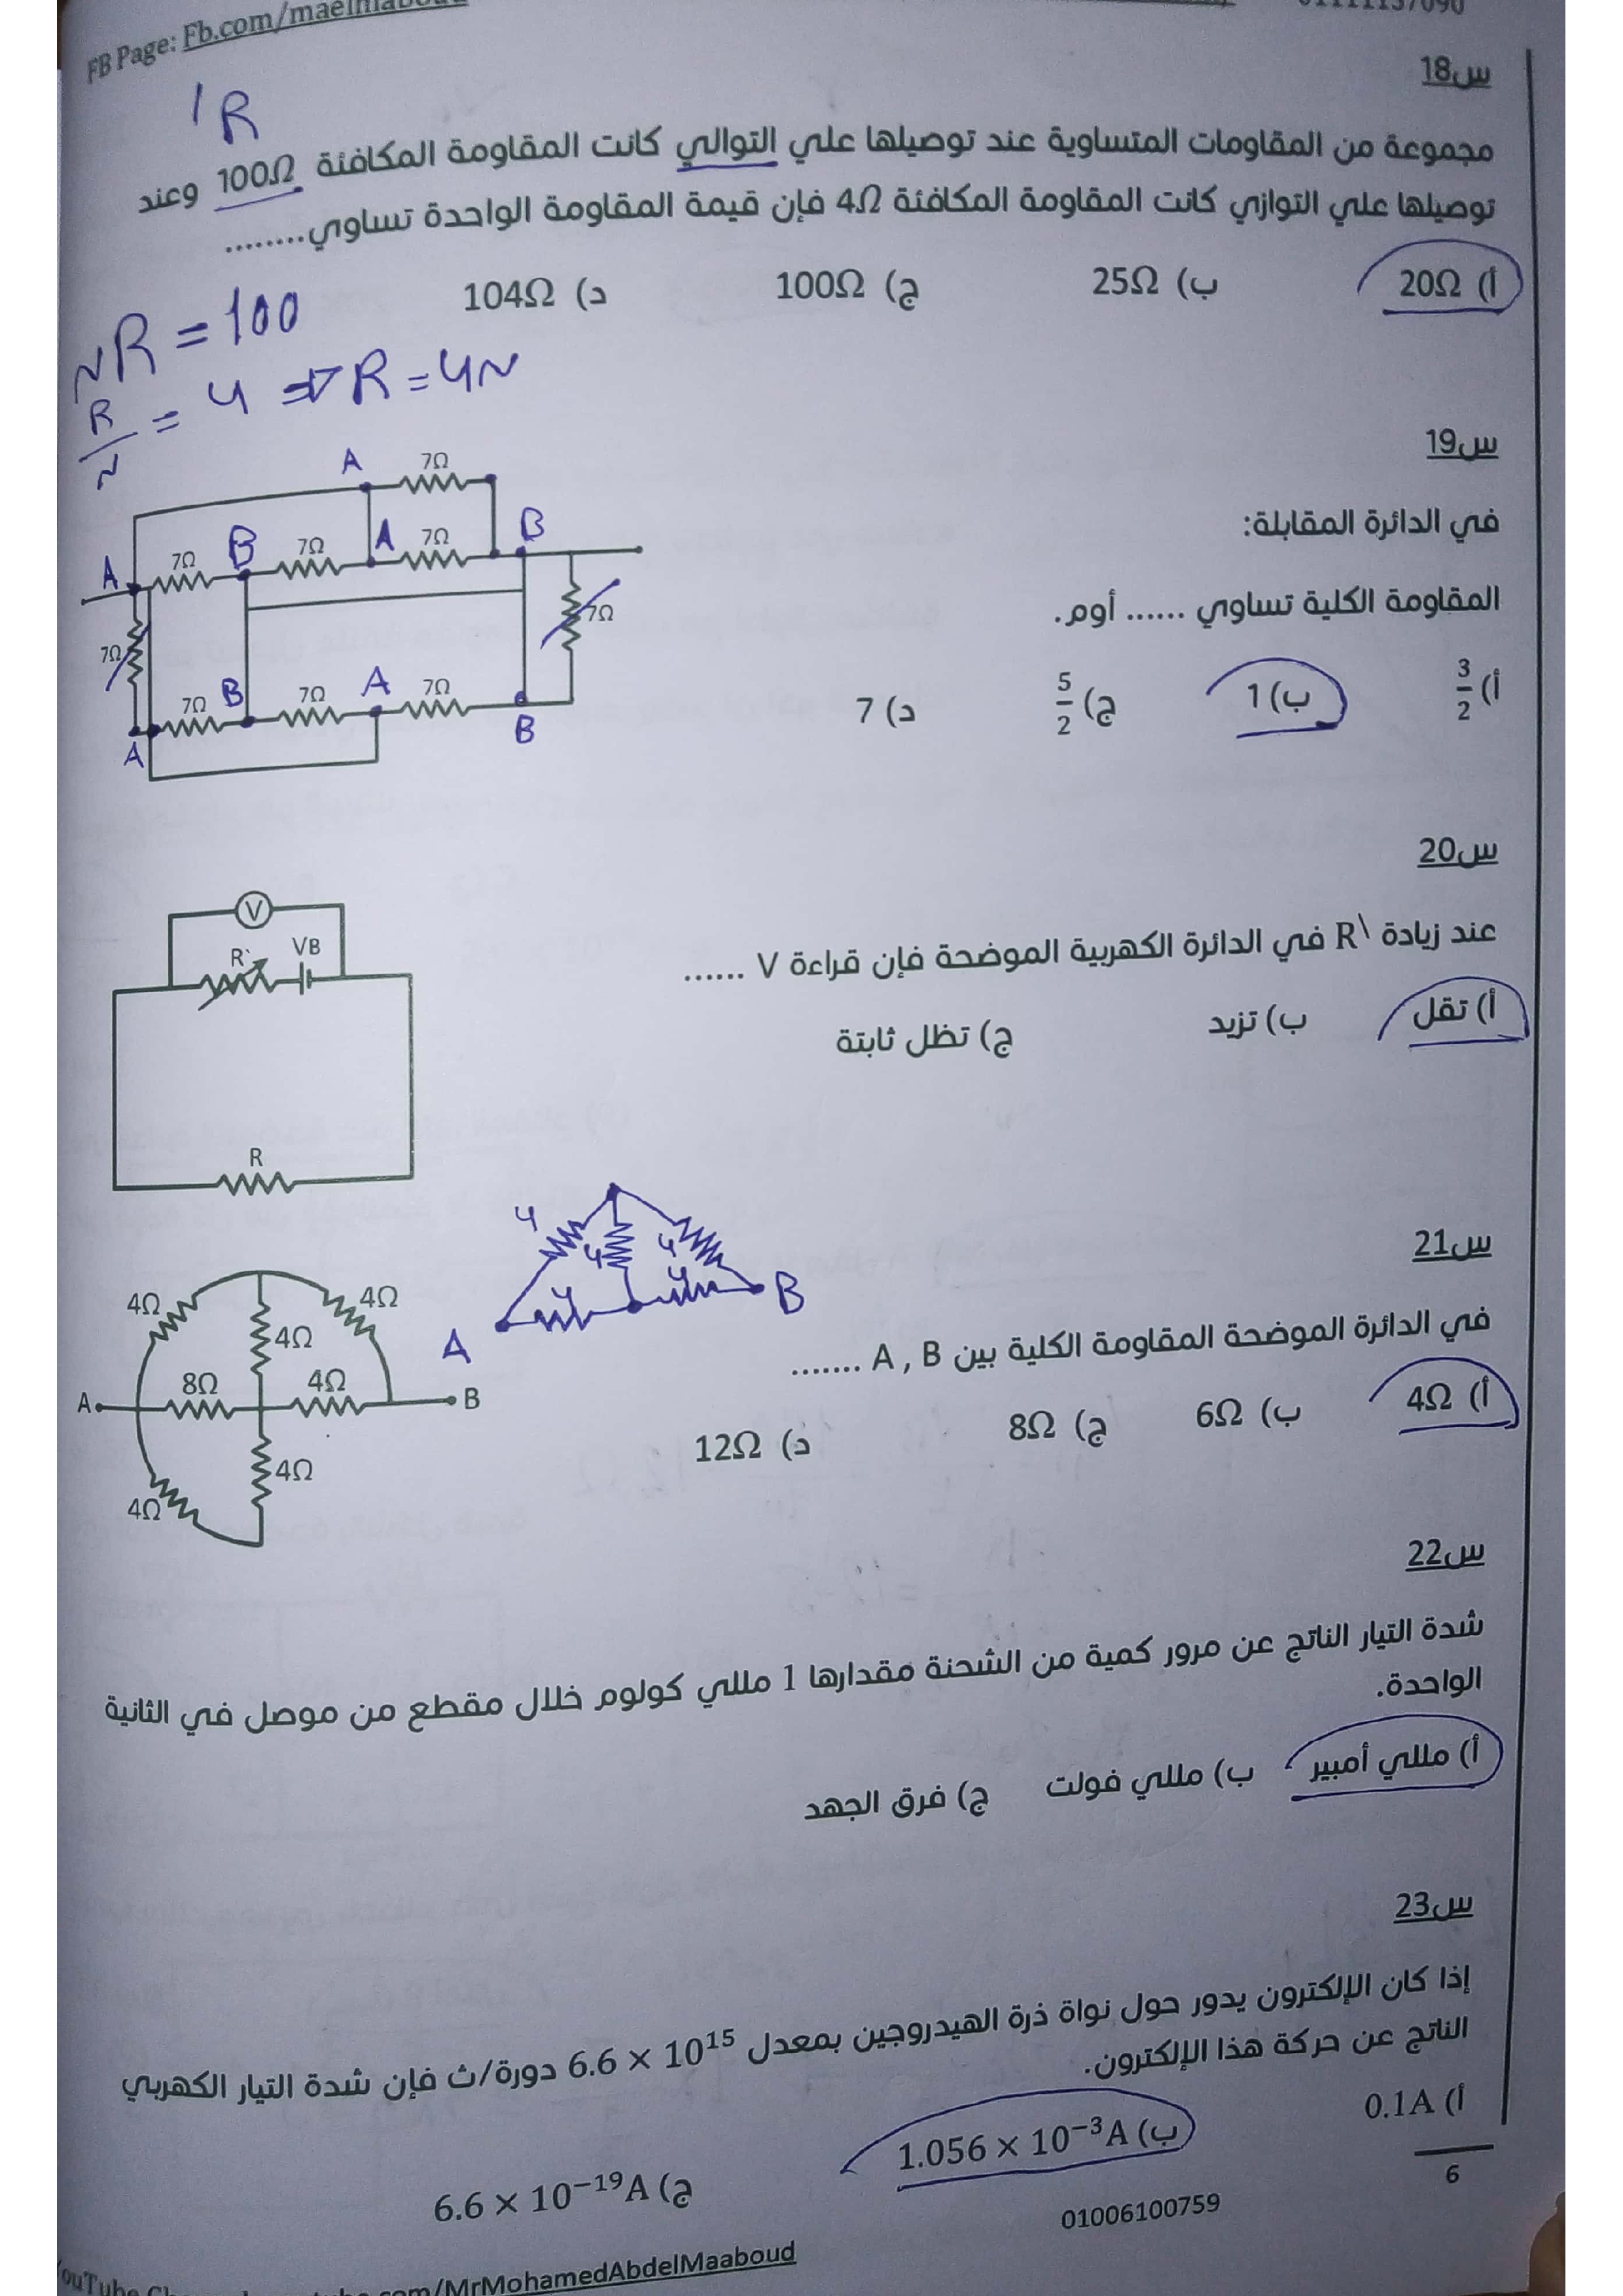 FB Page: Fb.com/maelmaboud
01111137090
س18
1R
مجموعة من المقاومات المتساوية عند توصيلها علي التوالي كانت المقاومة المكافئة 100Ω وعند
توصيلها علي التوازي كانت المقاومة المكافئة 4Ω فإن قيمة المقاومة الواحدة تساوي........
أ) 20Ω ب) 25Ω ج) 100Ω د) 104Ω
NR = 100
R/N = 4 ⇒ R = 4N
س19
في الدائرة المقابلة:
المقاومة الكلية تساوي ...... أوم.
أ) 3/2 ب) 1 ج) 5/2 د) 7
A 7Ω
A 7Ω B 7Ω A 7Ω B
7Ω 7Ω
7Ω B 7Ω A 7Ω
A B
س20
عند زيادة R\ في الدائرة الكهربية الموضحة فإن قراءة V ......
أ) تقل ب) تزيد ج) تظل ثابتة
V
R` VB
R
س21
في الدائرة الموضحة المقاومة الكلية بين A , B .......
أ) 4Ω ب) 6Ω ج) 8Ω د) 12Ω
4Ω 4Ω
4Ω
A 8Ω 4Ω B
4Ω
4Ω
4 4 4
A 4 4 B
س22
شدة التيار الناتج عن مرور كمية من الشحنة مقدارها 1 مللي كولوم خلال مقطع من موصل في الثانية
الواحدة.
أ) مللي أمبير ب) مللي فولت ج) فرق الجهد
س23
إذا كان الإلكترون يدور حول نواة ذرة الهيدروجين بمعدل 6.6 × 10¹⁵ دورة/ث فإن شدة التيار الكهربي
الناتج عن حركة هذا الإلكترون.
أ) 0.1A ب) 1.056 × 10⁻³A ج) 6.6 × 10⁻¹⁹A
6
01006100759
com/MrMohamedAbdelMaaboud